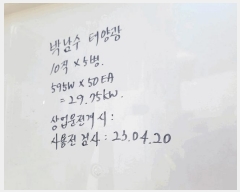 박난수 태양광
10직 × 5병.
595W × 50EA
= 29.75kW.
상업운전개시 :
사용전 검사 : 23.04.20